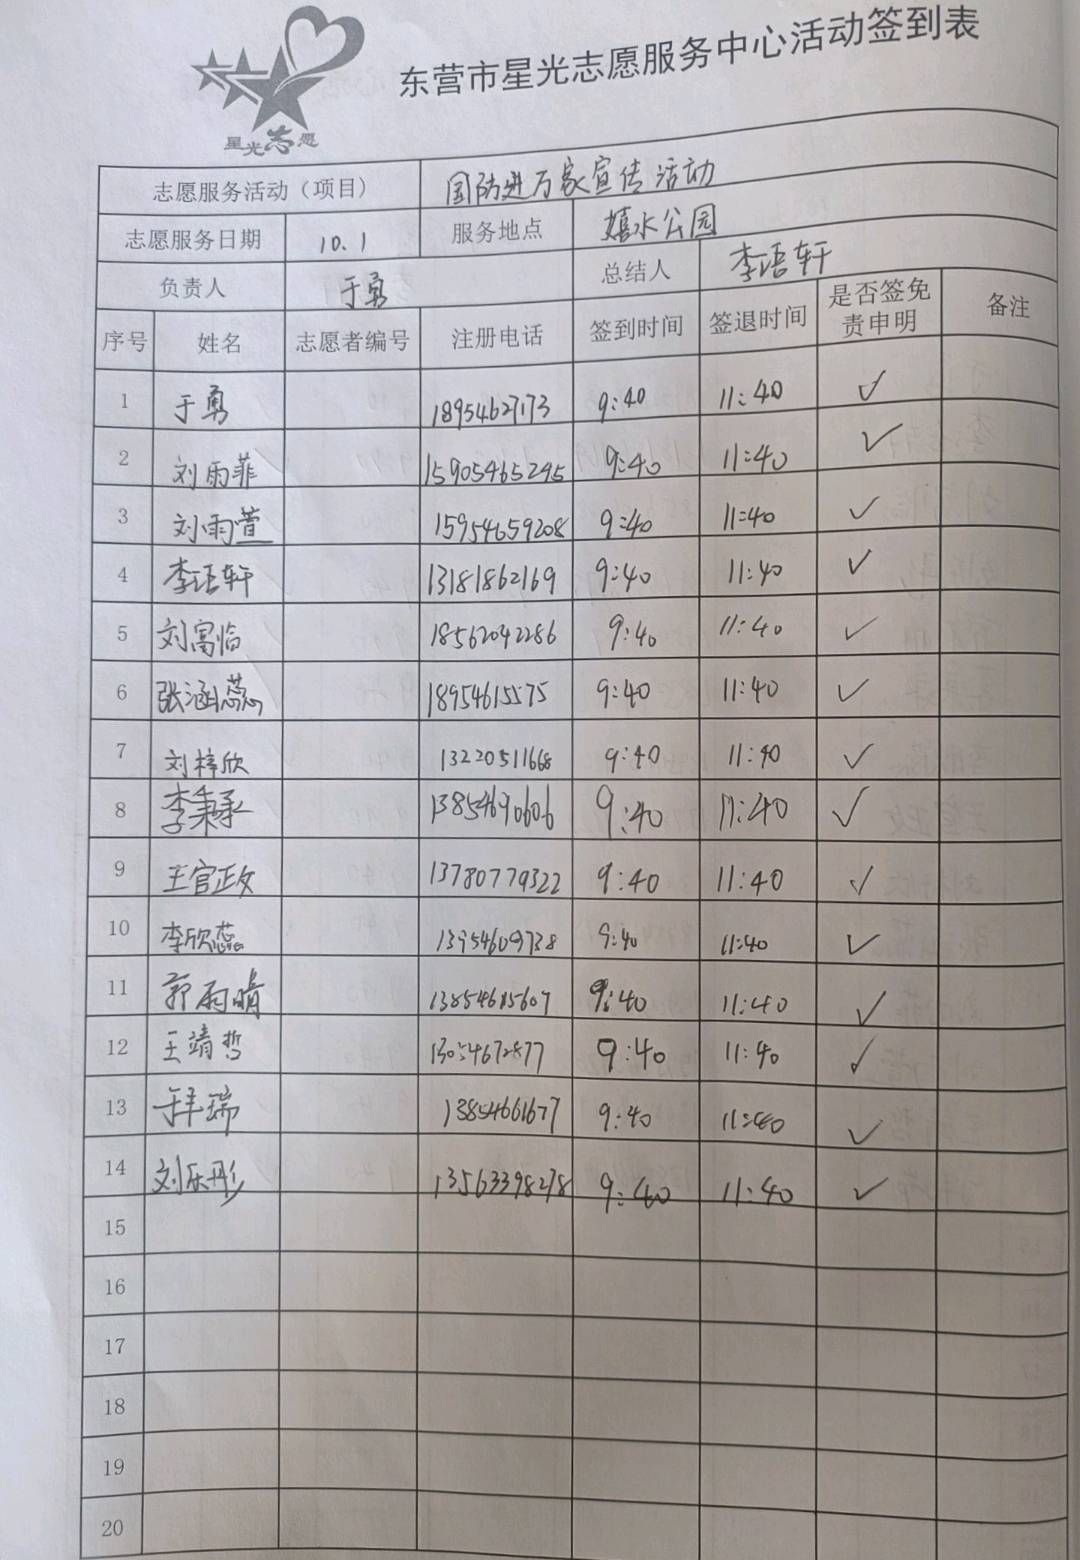 星光志愿
东营市星光志愿服务中心活动签到表
志愿服务活动（项目） 国防进万家宣传活动
志愿服务日期 10.1 服务地点 嬉水公园
负责人 于勇 总结人 李语轩
序号 姓名 志愿者编号 注册电话 签到时间 签退时间 是否签免责申明 备注
1 于勇 18954627173 9:40 11:40 ✓
2 刘雨菲 15905465245 9:40 11:40 ✓
3 刘雨萱 15954659208 9:40 11:40 ✓
4 李语轩 13181862169 9:40 11:40 ✓
5 刘富临 18562042286 9:40 11:40 ✓
6 张涵蕊 18954615575 9:40 11:40 ✓
7 刘梓欣 13220511668 9:40 11:40 ✓
8 李秉承 13854690606 9:40 11:40 ✓
9 王官正文 13780779322 9:40 11:40 ✓
10 李欣蕊 13954609738 9:40 11:40 ✓
11 郭雨晴 13854615607 9:40 11:40 ✓
12 王靖哲 13054672877 9:40 11:40 ✓
13 13854661677 9:40 11:40 ✓
14 刘乐彤 13563398278 9:40 11:40 ✓
15
16
17
18
19
20